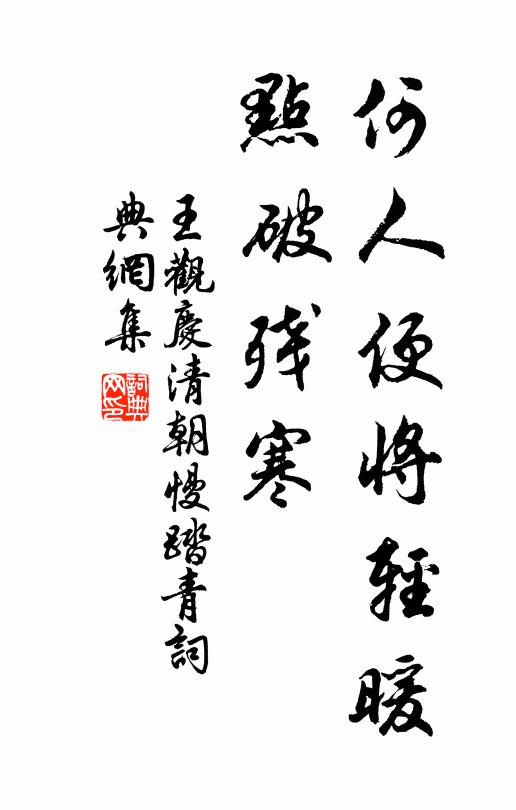 何人便將輕暖
點破殘寒
王觀慶清朝慢踏青詞
典網集
詞典
网印